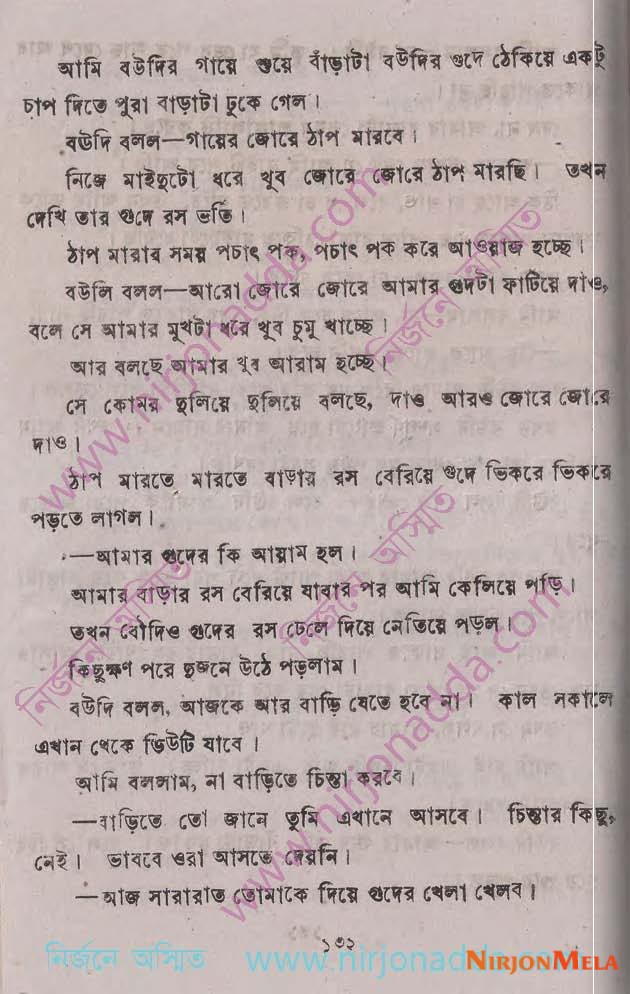 আমি বউদির গায়ে শুয়ে বাঁড়াটা বউদির গুদে ঠেকিয়ে একটু
চাপ দিতে পুরা বাড়াটা ঢুকে গেল।
বউদি বলল—গায়ের জোরে ঠাপ মারবে।
নিজে মাইদুটো ধরে খুব জোরে জোরে ঠাপ মারছি। তখন
দেখি তার গুদে রস ভর্তি।
ঠাপ মারার সময় পচাৎ পক, পচাৎ পক করে আওয়াজ হচ্ছে।
বউদি বলল—আরো জোরে জোরে আমার গুদটা ফাটিয়ে দাও,
বলে সে আমার মুখটা ধরে খুব চুমু খাচ্ছে।
আর বলছে আমার খুব আরাম হচ্ছে।
সে কোমর দুলিয়ে দুলিয়ে বলছে, দাও আরও জোরে জোরে
দাও।
ঠাপ মারতে মারতে বাড়ার রস বেরিয়ে গুদে ভিকরে ভিকরে
পড়তে লাগল।
—আমার গুদের কি আরাম হল।
আমার বাড়ার রস বেরিয়ে যাবার পর আমি কেলিয়ে পড়ি।
তখন বৌদিও গুদের রস ঢেলে দিয়ে নেতিয়ে পড়ল।
কিছুক্ষণ পরে দুজনে উঠে পড়লাম।
বউদি বলল, আজকে আর বাড়ি যেতে হবে না। কাল সকালে
এখান থেকে ডিউটি যাবে।
আমি বললাম, না বাড়িতে চিন্তা করবে।
—বাড়িতে তো জানে তুমি এখানে আসবে। চিন্তার কিছু
নেই। ভাববে ওরা আসতে দেয়নি।
—আজ সারারাত তোমাকে দিয়ে গুদের খেলা খেলব।
১৩২
নির্জনে অস্মিত www.nirjonadda.com
NIRJONMELA
www.nirjonadda.com
নির্জনে অস্মিত
www.nirjonadda.com
নির্জনে অস্মিত
নির্জনে অস্মিত